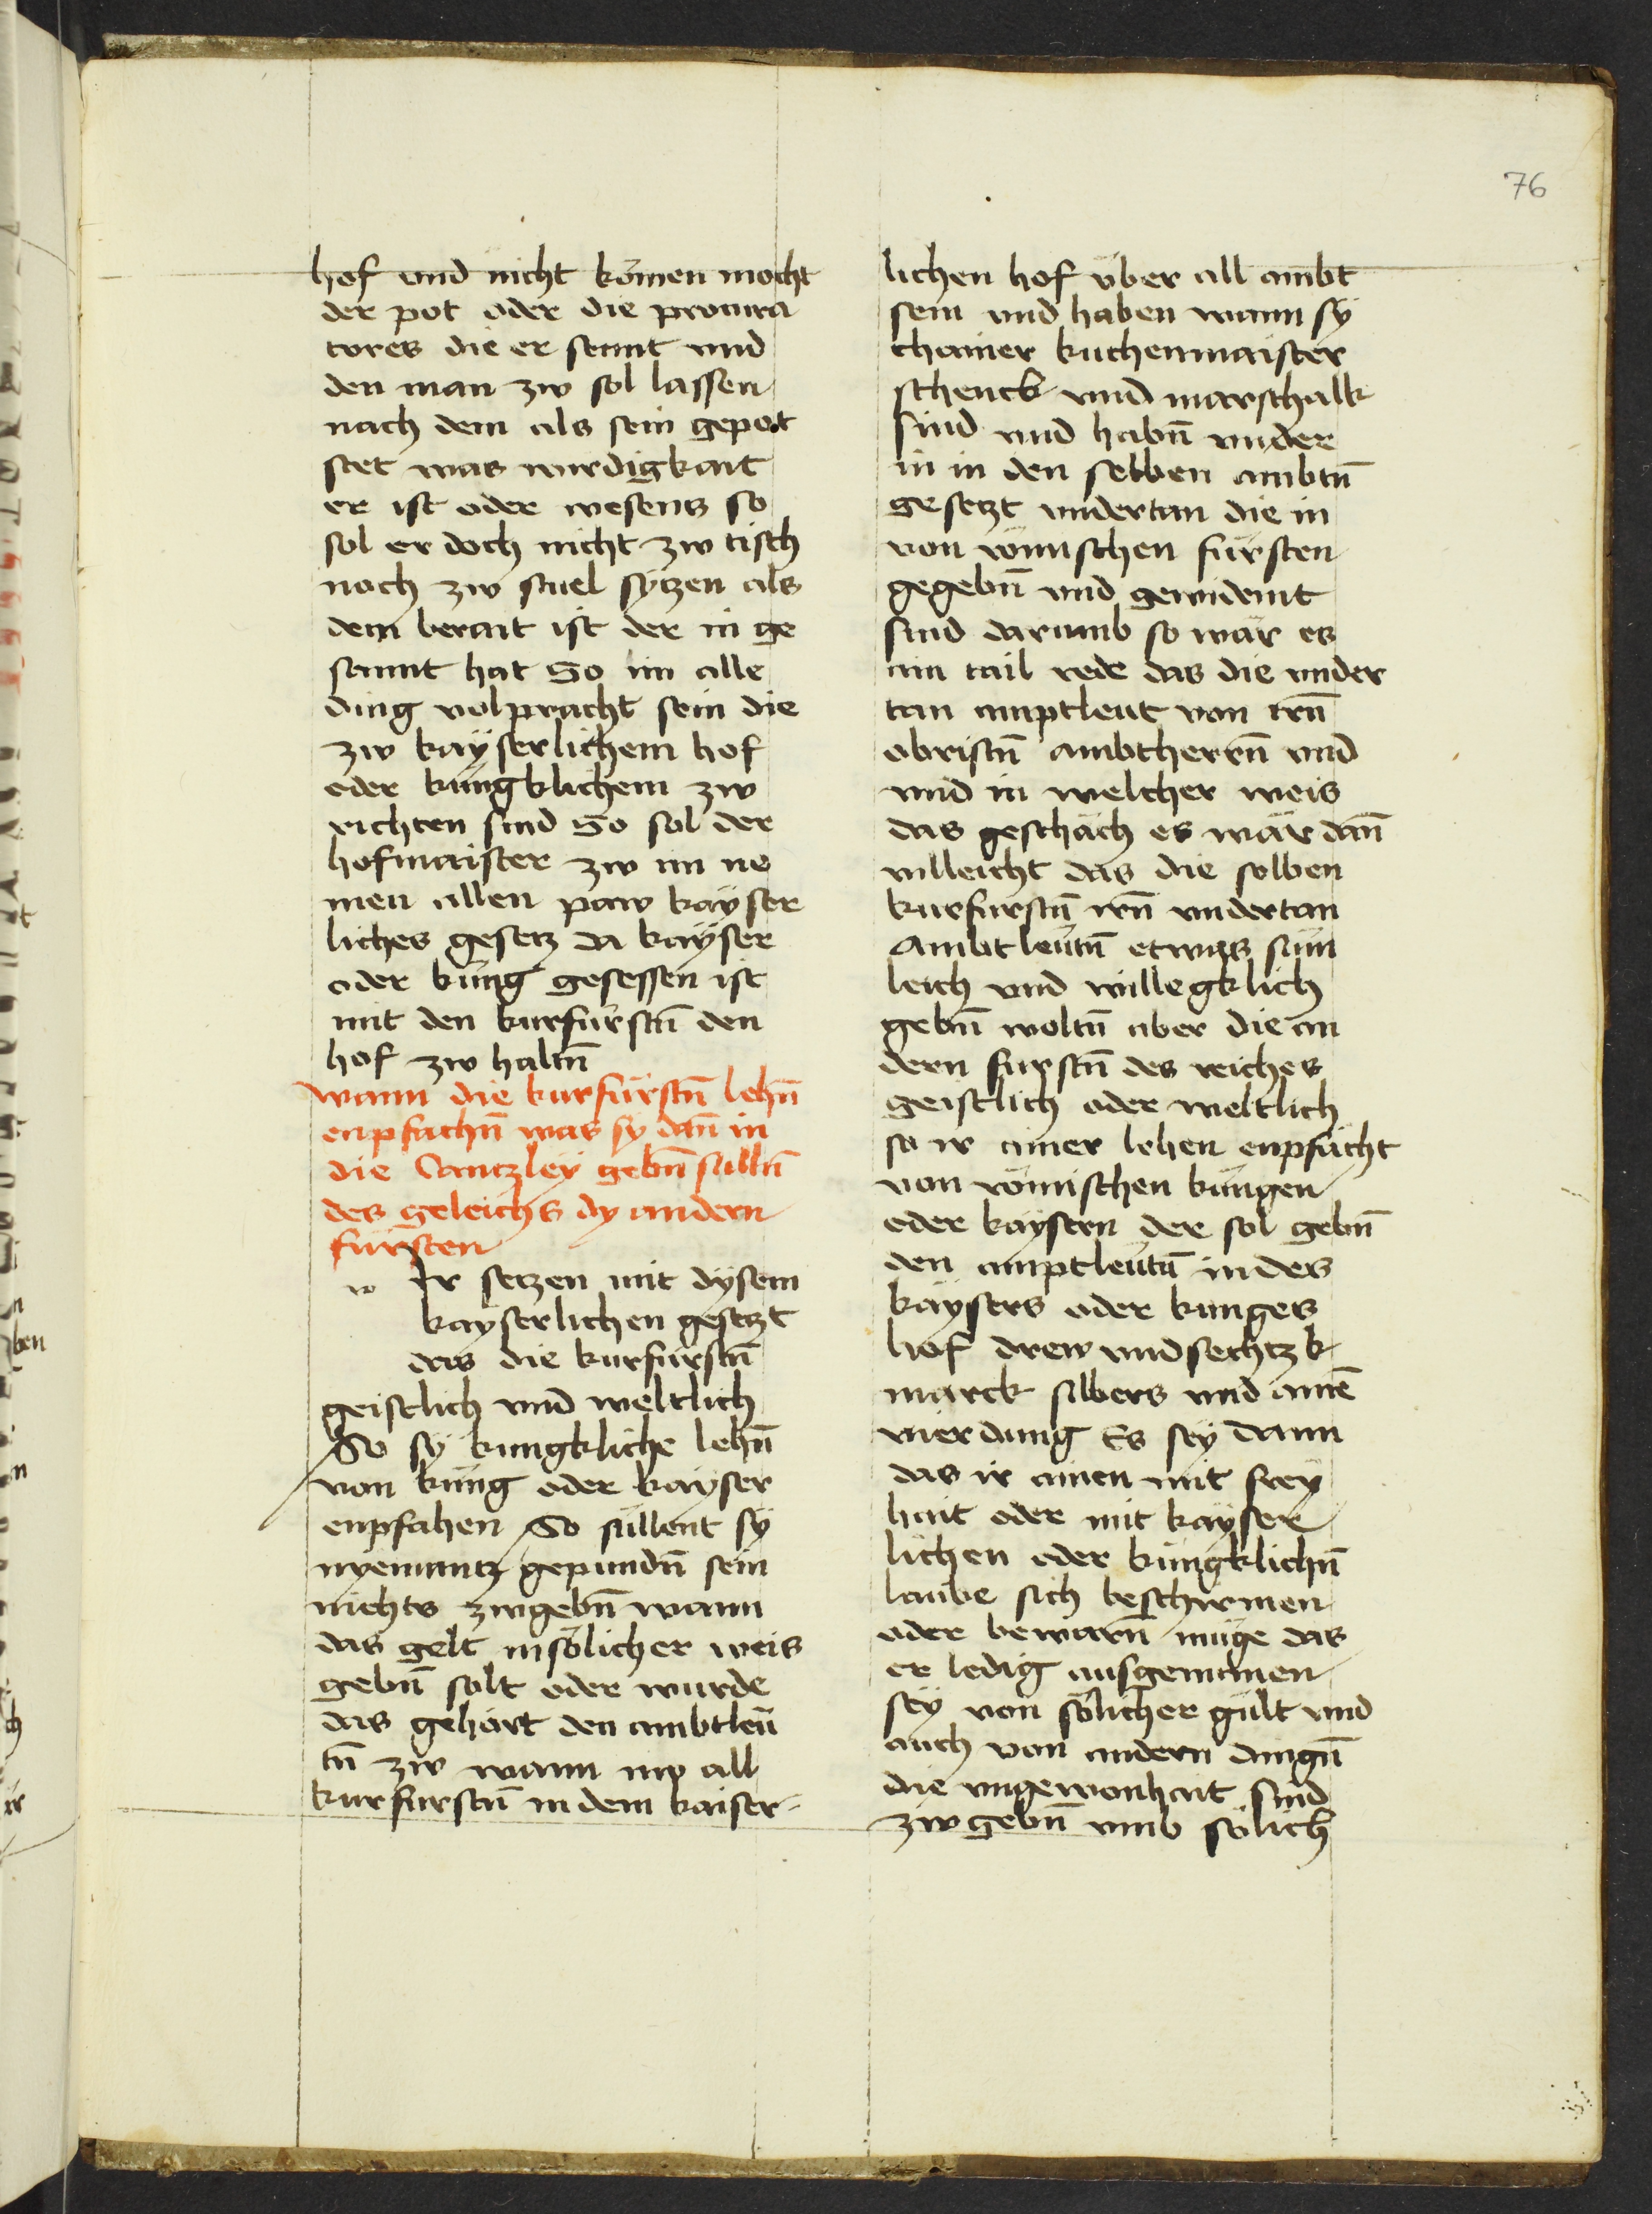 76
hof vnd nicht kömen mocht
der pot oder die procura
tores die er sennt vnd
den man zw sol lassen
nach dem als sein gepot
stet was wirdigkait
er ist oder wesens so
sol er doch nicht zw tisch
noch zw stuel sytzen als
dem berait ist der in ge
sannt hat So im alle
ding volpracht sein die
zw kayserlichem hof
oder kungklichem zw
richten sind So sol der
hofmaister zw im ne
men allen paw kayser
liches gesetz da kayser
oder küng gesessen ist
mit den kurfürstn̄ den
hof zw haltn̄
wann die kurfürstn̄ lehn̄
enpfachn̄ was sy dan̄ in
die Cantzley gebn̄ sülln̄
des geleichs dy andern
fürsten
w Ir setzen mit dysem
kayserlichen gesetzt
das die kurfürstn̄
geistlich vnd weltlich
So sy kungkliche lehn̄
von küng oder kayser
enpfahen So süllent sy
nyemantz gepundn̄ sein
nichts zwgebn̄ wann
das gelt in sölicher weis
gebn̄ solt oder wurde
das gehört den ambtleü
tn̄ zw wann nw all
kurfurstn̄ in dem kaiser-
lichen hof über all ambt
sein vnd haben wann sy
chamer kuchenmaister
schenck vnd marschalk
sind vnd habn̄ vnder
in in den selben ambtn̄
gesetzt vndertan die in
von römischen fürsten
gegebn̄ vnd gewidemt
sind darumb so wär es
ain tail rede das die vnder
tan amptleut von irn̄
obristn̄ ambtherrn̄ vnd
vnd in welcher weis
das geschäch es wär dan̄
villeicht das die selben
kurfurstn̄ irn̄ vndertan
Ambtleütn̄ etwas sün
leich vnd willegklich
gebn̄ woltn̄ aber die an
dern furstn̄ des reiches
geistlich oder weltlich
so ir ainer lehen enpfächt
von römischen küngen
oder kaysern der sol gebn̄
den amptleütn̄ in des
kaysers oder kunges
hof drew vnd sechtzk
marck silbers vnd ainē
vierdung Es sey dann
das ir ainen mit frey
hait oder mit kayser
lichen oder küngklichn̄
laube sich beschirmen
oder bewarn̄ müge das
er ledig ausgenomen
sey von sölicher gült vnd
auch von andern dingn̄
die vngewonhait sind
zw gebn̄ vmb sölich